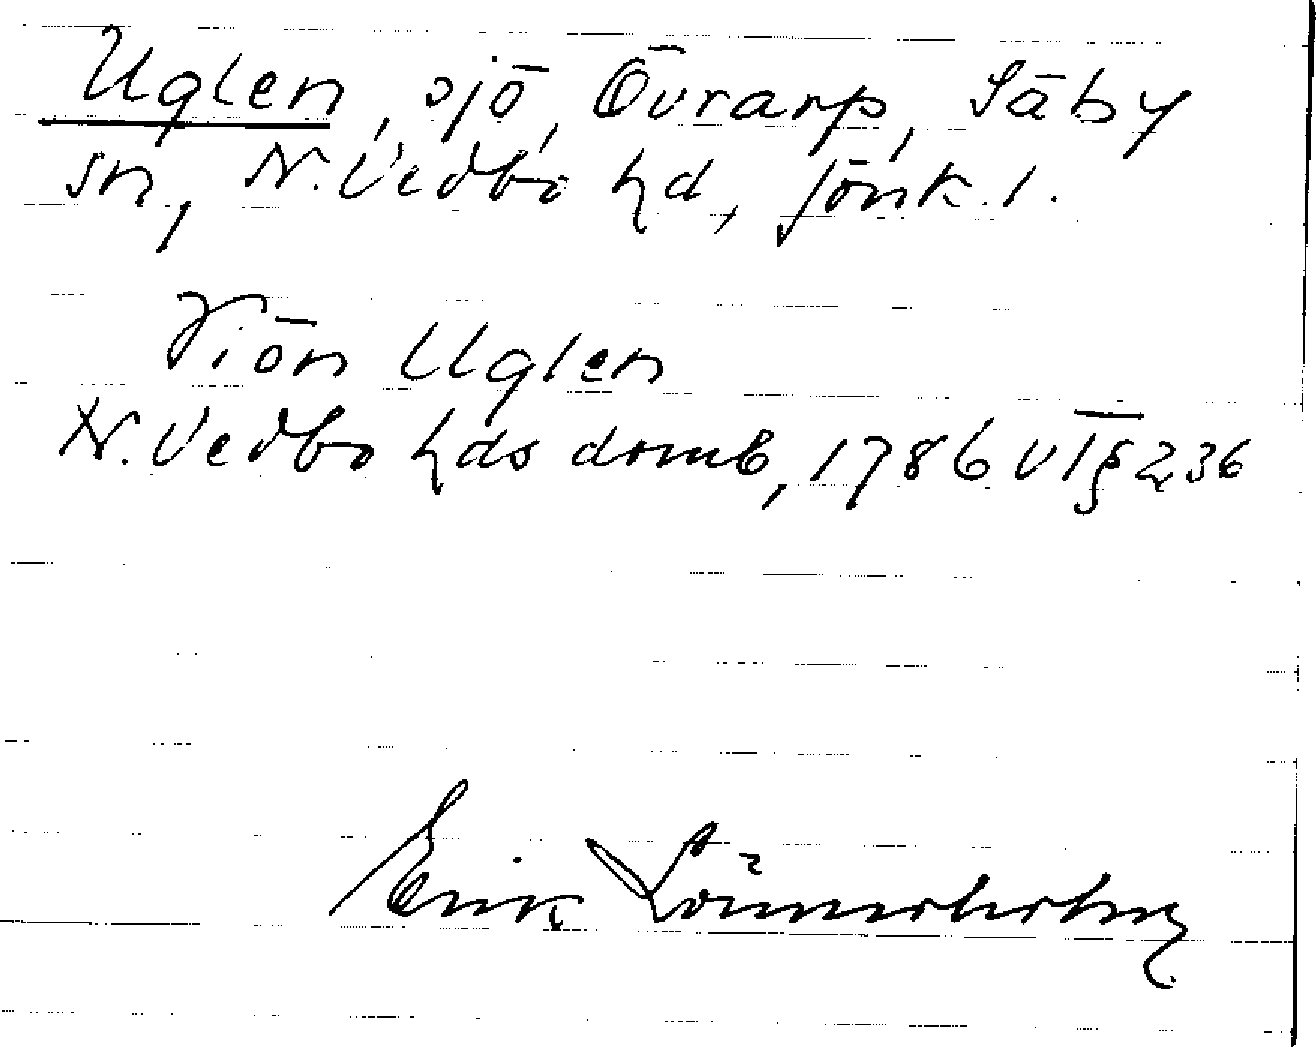 Uglen, sjö, Övrarp, Säby
sn, N. Vedbo hd, Jönk. l.
Viön Uglen
N. Vedbo hds domb, 1786 VT § 236
Erik Lönnerholm